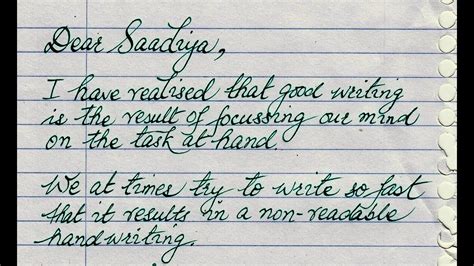 Dear Saadiya,
I have realised that good writing
is the result of focussing our mind
on the task at hand.
We at times try to write so fast
that it results in a non-readable
handwriting.